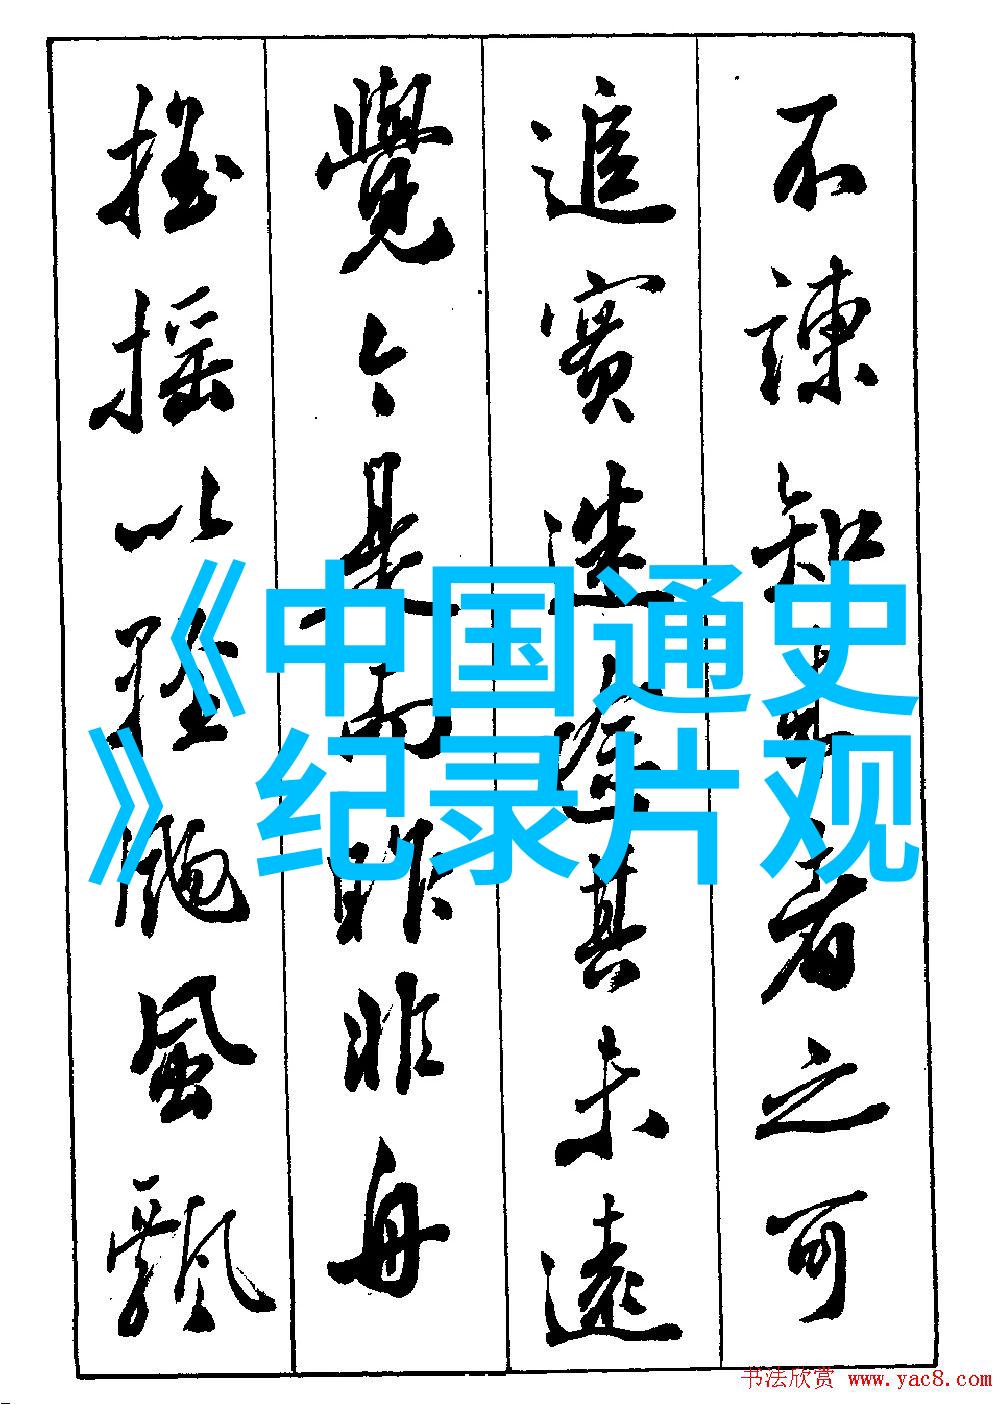 不諫知来者之可
追實迷途其未遠
覺今是而昨非舟
摇摇以輕颺風飄
《中国通史
》纪录片观
书法欣赏 www.yac8.com